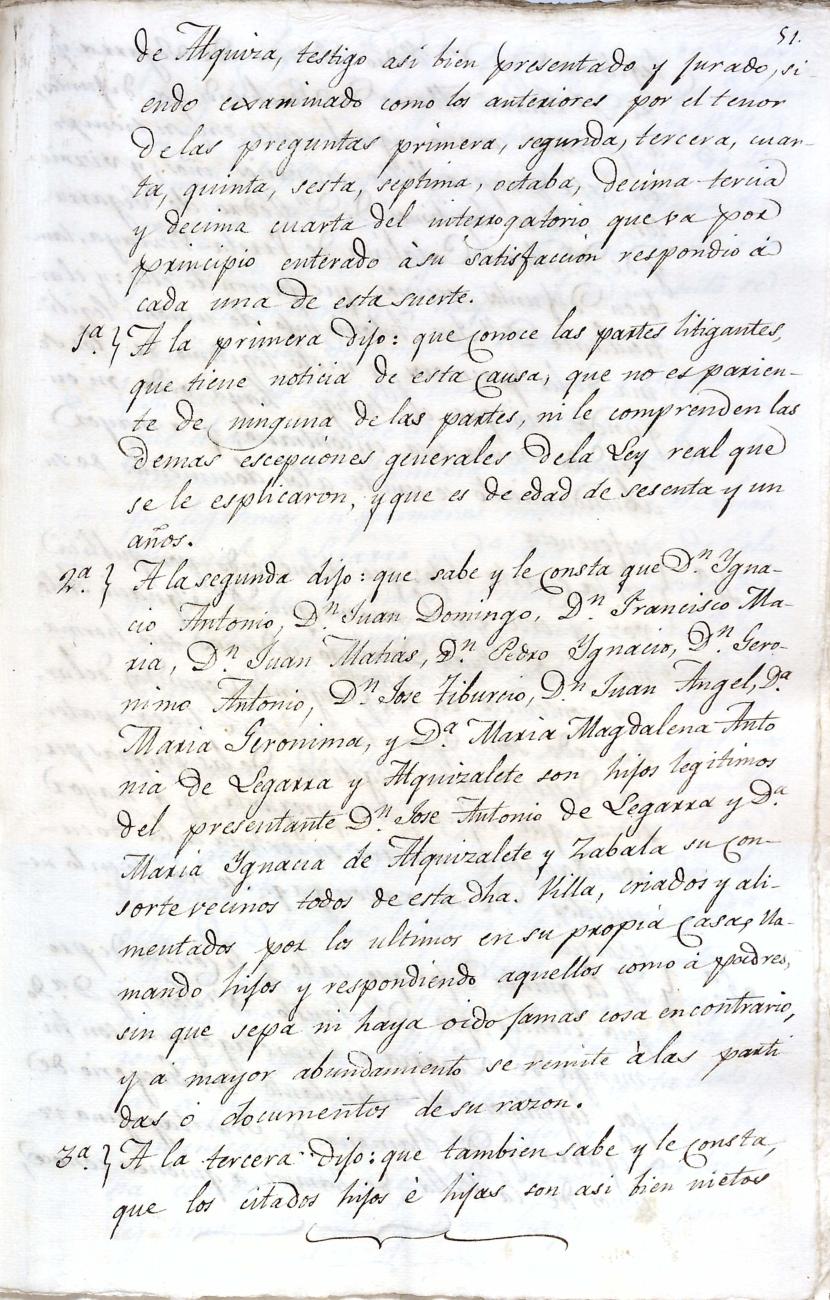 51.
de Alquiza, testigo asi bien presentado y jurado, si-
endo examinado como los anteriores por el tenor
de las preguntas primera, segunda, tercera, cuar-
ta, quinta, sesta, septima, octaba, decima tercia
y decima cuarta del interrogatorio que va por
principio enterado à su satisfaccion respondio á
cada una de esta suerte.
1ª } A la primera dijo: que conoce las partes litigantes,
que tiene noticia de esta Causa, que no es parien-
te de ninguna de las partes, ni le comprenden las
demas escepciones generales dela Ley real que
se le esplicaron, y que es de edad de sesenta y un
años.
2ª } A la segunda dijo: que sabe y le consta que Dn Ygna-
cio Antonio, Dn Juan Domingo, Dn Francisco Ma-
ria, Dn Juan Matias, Dn Pedro Ygnacio, Dn Gero-
nimo Antonio, Dn Jose Tiburcio, Dn Juan Angel, Dª
Maria Geronima, y Dª Maria Magdalena Anto
nia de Legarra y Alquizalete son hijos legitimos
del presentante Dn Jose Antonio de Legarra y Dª
Maria Ygnacia de Alquizalete y Zabala su con-
sorte vecinos todos de esta dha. Villa, criados y ali-
mentados por los ultimos en su propia Casa, lla-
mando hijos y respondiendo aquellos como á padres,
sin que sepa ni haya oido jamas cosa encontrario,
y á mayor abundamiento se remite à las parti
das ó documentos de su razon.
3ª } A la tercera dijo: que tambien sabe y le consta,
que los citados hijos è hijas son asi bien nietos